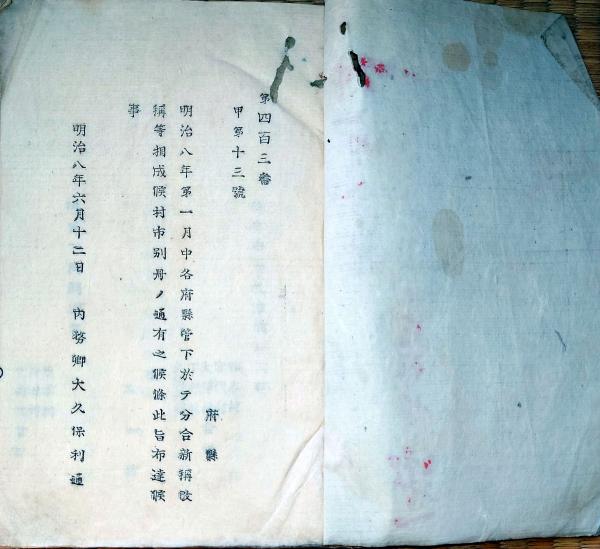 第四百三番
甲第十三號
府縣
明治八年第一月中各府縣管下於テ分合新稱改
稱等相成候村市別册ノ通有之候條此旨布達候
事
明治八年六月十二日 內務卿大久保利通